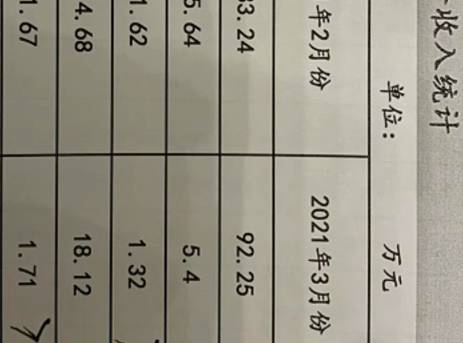 收入统计
单位： 万元
年2月份 2021年3月份
33.24 92.25
5.64 5.4
1.62 1.32
4.68 18.12
1.67 1.71